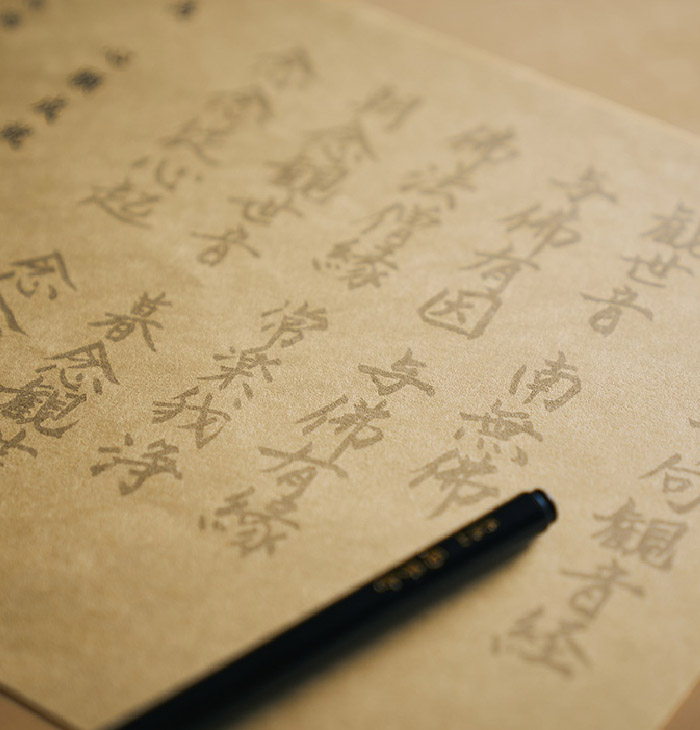 句観音経
観世音 南無佛
与佛有因 与佛有縁
佛法僧縁 常楽我浄
朝念観世音 暮念観世
念念従心起 念